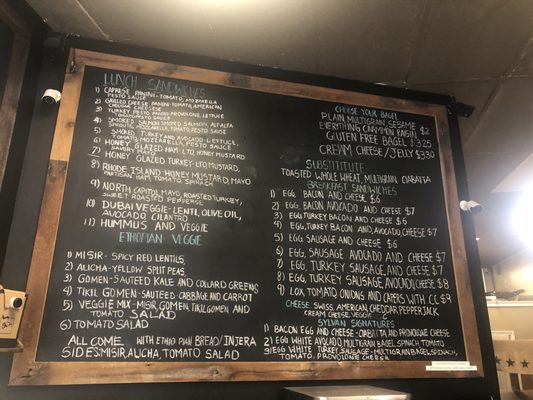 LUNCH SANDWICHES
1) CAPRESE PANINI-TOMATO, MOZZARELLA
PESTO SAUCE
2) GRILLED CHEESE PANINI-TOMATO, AMERICAN
CHEDDAR CHEESE
3) TURKEY PANINI PROVOLONE, LETTUCE
TOMATO PESTO SAUCE
4) SMOKED SALMON ALFALFA
MOZZARELLA, TOMATO, PESTO SAUCE
5) SMOKED TURKEY AND AVOCADO-LETTUCE,
TOMATO, MOZZARELLA, PESTO SAUCE
6) HONEY GLAZED HAM-LTO, HONEY MUSTARD
7) HONEY GLAZED TURKEY-LTO, MUSTARD,
8) RHODE ISLAND-HONEY MUSTARD, MAYO
HAM, TOMATO, SPINACH
9) NORTH CAPITOL, MAYO ROASTED TURKEY,
SWEET ROASTED PEPPERS
10) DUBAI VEGGIE-LENTIL, OLIVE OIL,
AVOCADO CILANTRO
11) HUMMUS AND VEGGIE
ETHIOPIAN VEGGIE
1) MISIR - SPICY RED LENTILS
2) ALICHA-YELLOW SPLIT PEAS,
3) GOMEN-SAUTEED KALE AND COLLARD GREENS
4) TIKIL GOMEN-SAUTEED CABBAGE AND CARROT
5) VEGGIE MIX-MISIR, GOMEN, TIKIL GOMEN AND
TOMATO SALAD
6) TOMATO SALAD
ALL COME WITH ETHIOPIAN BREAD/INJERA
SIDES: MISIR, ALICHA, TOMATO SALAD
CHOOSE YOUR BAGEL
PLAIN MULTIGRAIN, SESAME
EVERYTHING CINNAMON RAISIN, $2
GLUTEN FREE BAGEL $3.25
CREAM CHEESE/JELLY $3.30
SUBSTITITUTE
TOASTED WHOLE WHEAT, MULTIGRAIN, CIABATTA
BREAKFAST SANDWICHES
1) EGG, BACON AND CHEESE $6
2) EGG, BACON AVOCADO AND CHEESE $7
3) EGG, TURKEY BACON AND CHEESE $6
4) EGG, TURKEY BACON, AND AVOCADO, CHEESE $7
5) EGG, SAUSAGE AND CHEESE $6
6) EGG, SAUSAGE AVOCADO AND CHEESE $7
7) EGG, TURKEY SAUSAGE, AND CHEESE $7
8) EGG, TURKEY SAUSAGE, AVOCADO, CHEESE $8
9) LOX TOMATO ONIONS AND CAPERS WITH CC $9
CHEESE SWISS, AMERICAN, CHEDDAR, PEPPERJACK
CREAM CHEESE, VEGGIE
SYLVAN SIGNATURES
1) BACON EGG AND CHEESE-CIABATTA AND PROVOLONE CHEESE
2) EGG WHITE AVOCADO, MULTIGRAIN BAGEL, SPINACH, TOMATO
3) EGG WHITE TURKEY SAUSAGE-MULTIGRAIN BAGEL, SPINACH,
TOMATO, PROVOLONE CHEESE